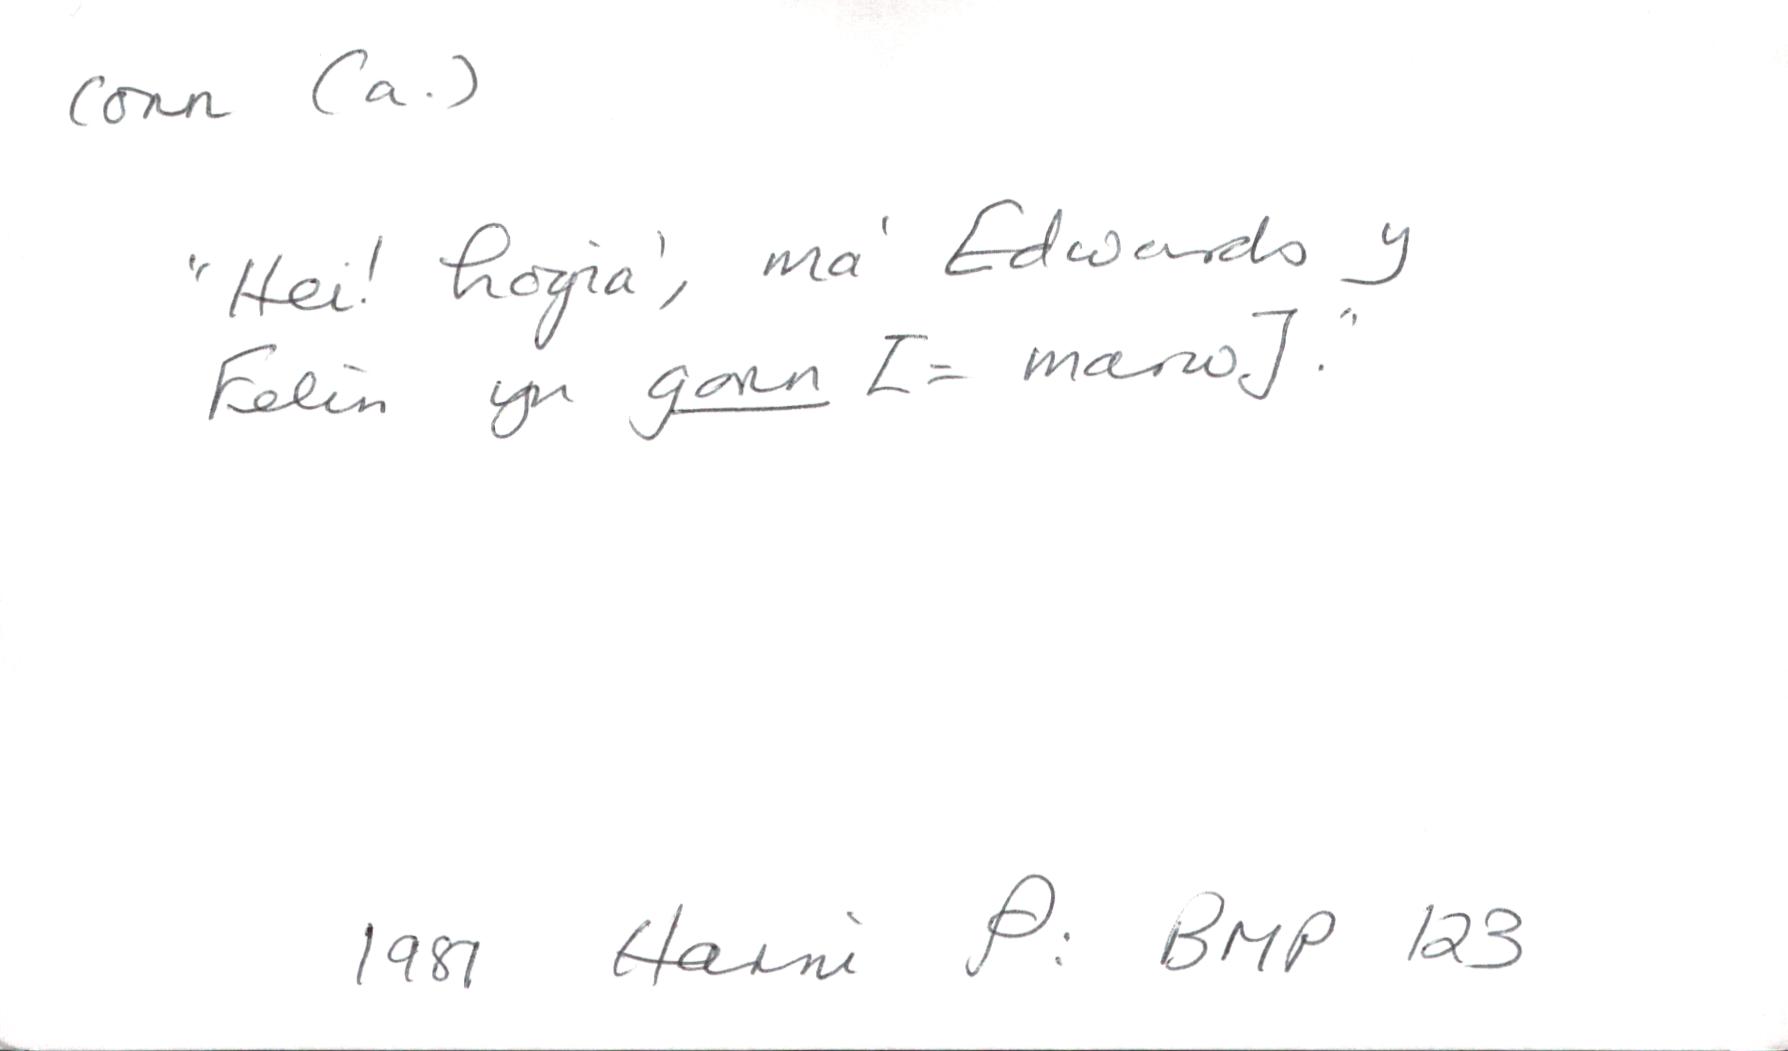 conn (a.)
"Hei! hogia', ma' Edwards y
Felin yn gonn [= marw]."
1987 Harri P: BMP 123